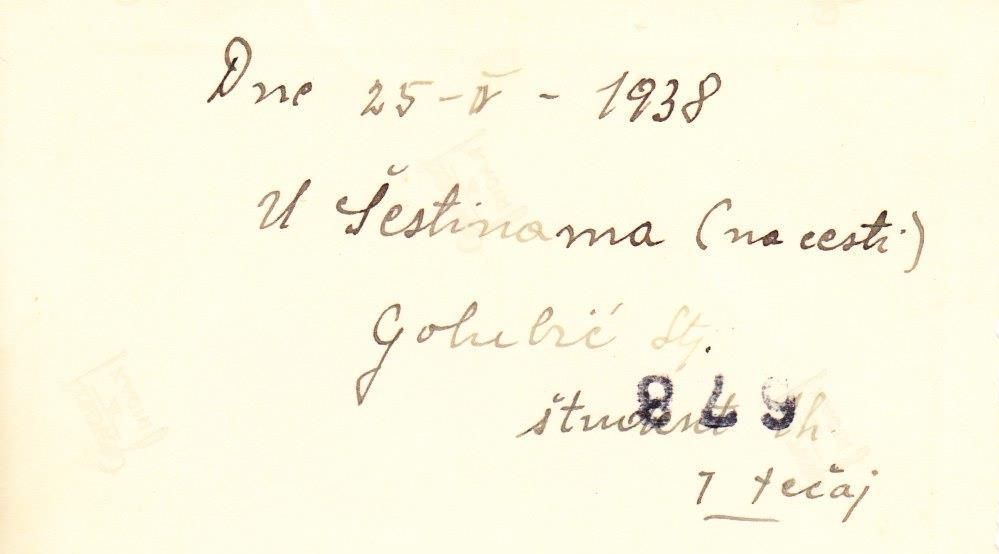 Dne 25-IV-1938
U Šestinama (na cesti)
Golubić Stj.
študent th.
849
I tečaj